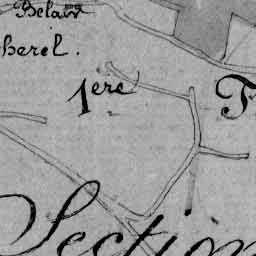 Belair
herel.
1ere F
Section